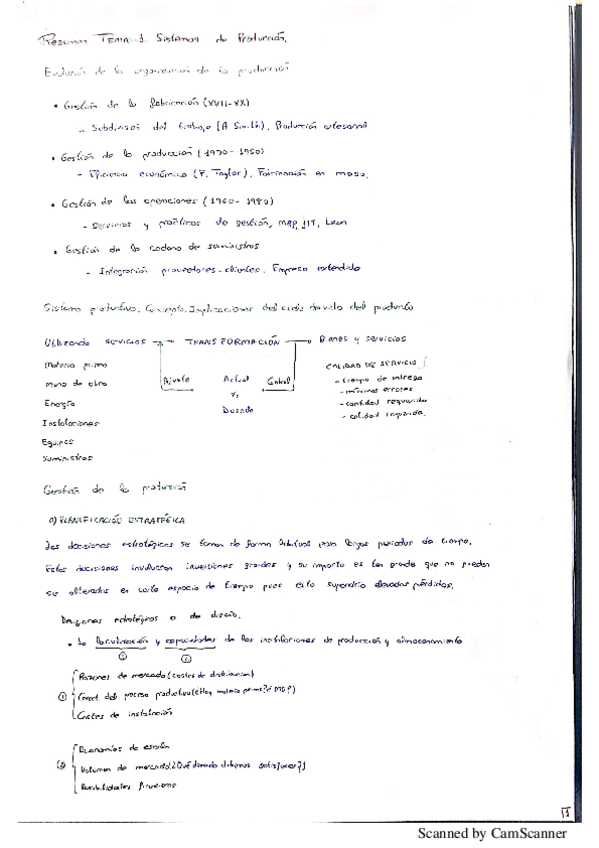 Resumen TEMA 1. Sistemas de Producción.
Evolución de la organización de la producción
• Gestión de la fabricación (XVII-XX)
- Subdivisión del trabajo (A Smith). Producción artesanal
• Gestión de la producción (1930-1950)
- Eficiencia económica (F. Taylor). Fabricación en masa.
• Gestión de las operaciones (1960-1980)
- Servicios y prácticas de gestión, MRP, JIT, Lean
• Gestión de la cadena de suministros
- Integración proveedores-clientes. Empresa extendida
Sistema productivo. Concepto. Implicaciones del ciclo de vida del producto
Utilizando servicios → TRANSFORMACIÓN → Bienes y servicios
Materia prima
Mano de obra
Energía
Instalaciones
Equipos
Suministros
Ajuste
Actual
vs
Deseado
Control
CALIDAD DE SERVICIO
- tiempo de entrega
- mínimos errores
- cantidad requerida
- calidad
Gestión de la producción
a) PLANIFICACIÓN ESTRATÉGICA
Las decisiones estratégicas se toman de forma habitual para largos periodos de tiempo.
Estas decisiones involucran inversiones grandes y su importe es tan grande que no pueden
ser alteradas en corto espacio de tiempo pues ello supondría elevadas pérdidas.
Decisiones estratégicas o de diseño.
• La localización y capacidades de las instalaciones de producción y almacenamiento
① ②
Razones de mercado (costes de distribución)
① Caract. del proceso productivo ( materia prima? MO?)
Costes de instalación
Economías de escala
② Volumen de mercado (¿Qué demanda debemos satisfacer?)
Posibilidades financieras
1
Scanned by CamScanner